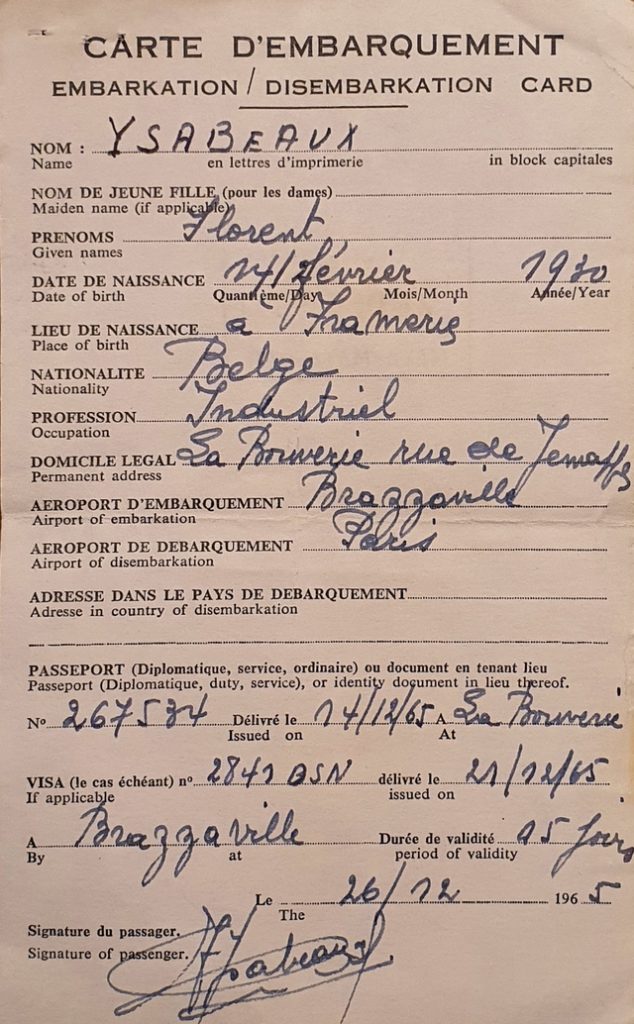 CARTE D'EMBARQUEMENT
EMBARKATION / DISEMBARKATION CARD
NOM : YSABEAUX
Name en lettres d'imprimerie in block capitales
NOM DE JEUNE FILLE (pour les dames)
Maiden name (if applicable)
PRENOMS Florent
Given names
DATE DE NAISSANCE 14/février 1930
Date of birth Quantième/Day Mois/Month Année/Year
LIEU DE NAISSANCE à Frameries
Place of birth
NATIONALITE Belge
Nationality
PROFESSION Industriel
Occupation
DOMICILE LEGAL La Bouverie rue de Jemappes
Permanent address
AEROPORT D'EMBARQUEMENT Brazzaville
Airport of embarkation
AEROPORT DE DEBARQUEMENT Paris
Airport of disembarkation
ADRESSE DANS LE PAYS DE DEBARQUEMENT
Adresse in country of disembarkation
PASSEPORT (Diplomatique, service, ordinaire) ou document en tenant lieu
Passeport (Diplomatique, duty, service), or identity document in lieu thereof.
No 267534 Délivré le 14/12/65 A La Bouverie
Issued on At
VISA (le cas échéant) no 2841 délivré le 21/12/65
If applicable issued on
A Brazzaville Durée de validité 15 Jours
By at period of validity
Le 26/12 1965
The
Signature du passager.
Signature of passenger. Ysabeaux